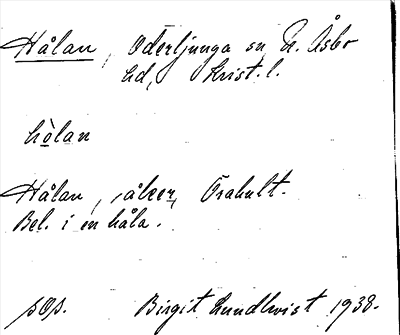 Hålan, Oderljunga sn N. Åsbo
hd, Krist. l.
hòlan
Hålan, åker, Örahult.
Bel. i en håla.
sOp. Birgit Lundkvist 1938.